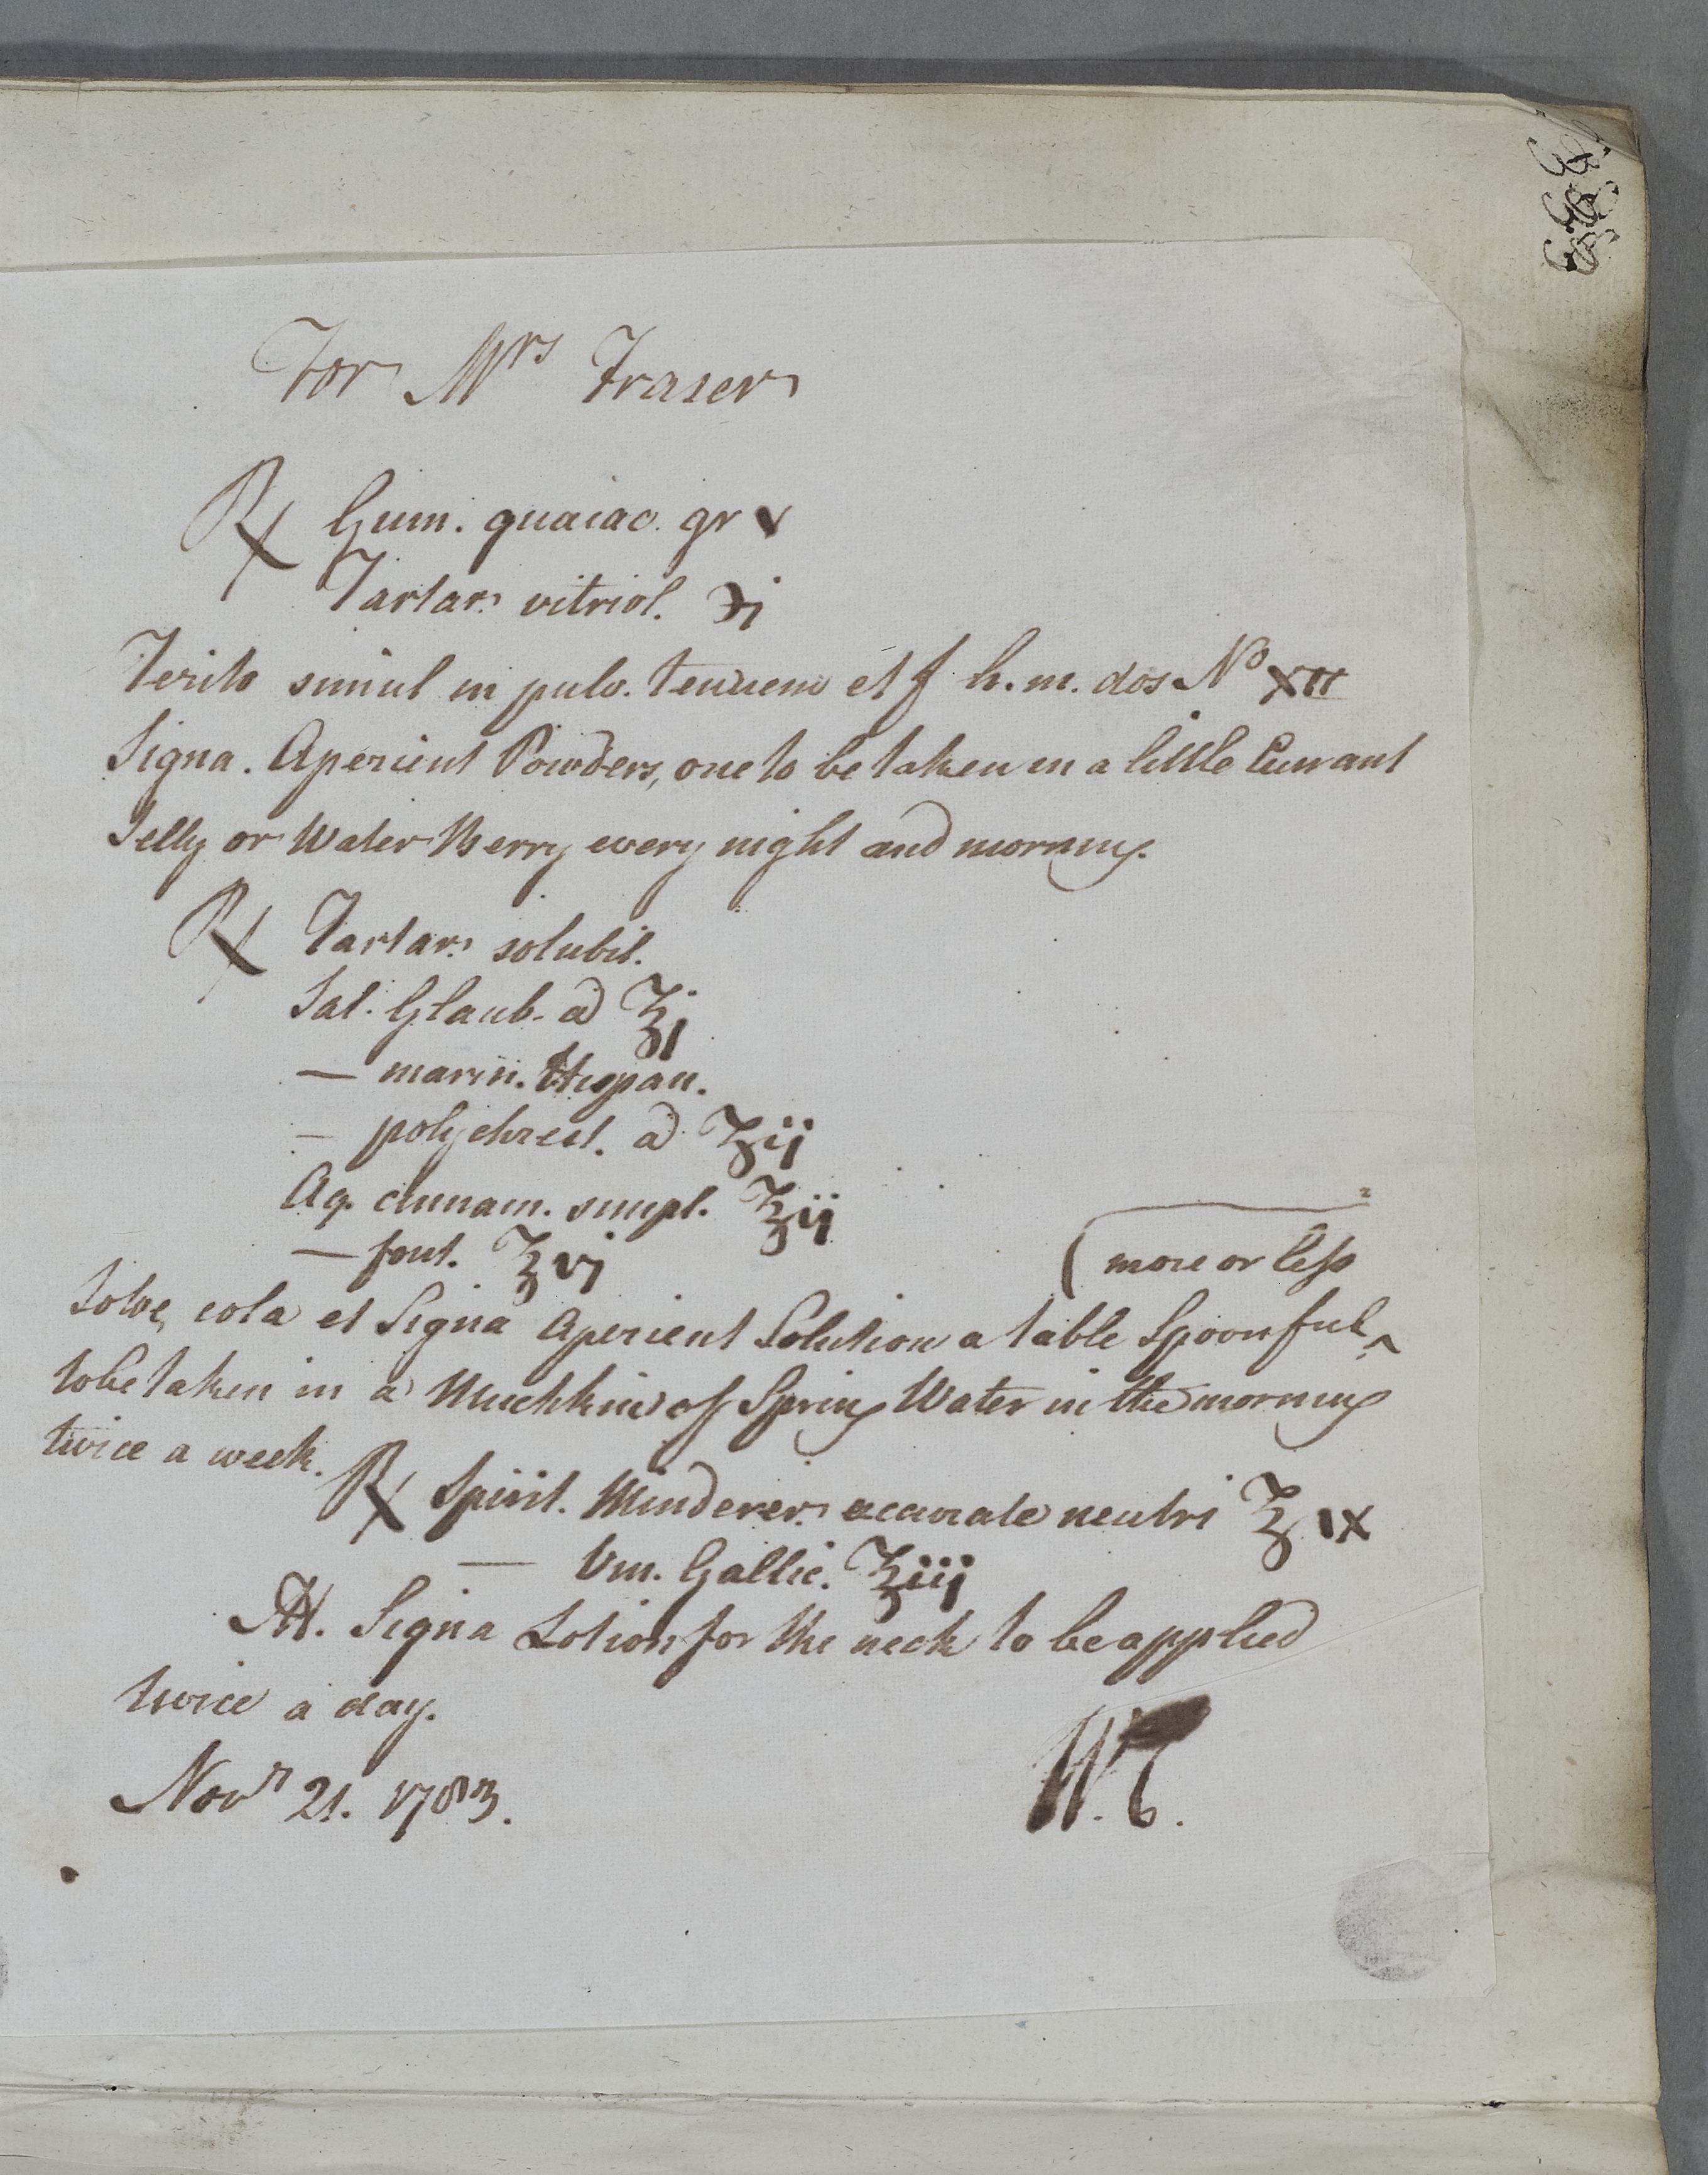 For Mrs Fraser
℞ Gum. guaiac. gr v
Tartar. vitriol. ℈i
Terito simul in pulv. tenuem et f h. m. dos No XII
Signa. Aperient Powders, one to be taken in a little Currant
Jelly or Water Berry every night and morning.
℞ Tartar. solubil.
Sal. Glaub. a ℥j
— marin. Hispan.
— polychrest. a ʒij
Aq. cinnam. simpl. ℥ij
— font. ℥vj
(more or less
Solve, cola et Signa Aperient Solution a table Spoonful ^
to be taken in a Mutchkin of Spring Water in the morning
twice a week.
℞ Spirit. Minderer. accurate neutri ℥ix
— Vin. Gallic. ℥iij
M. Signa Lotion for the neck to be applied
twice a day.
Novr 21. 1783.
W. C.